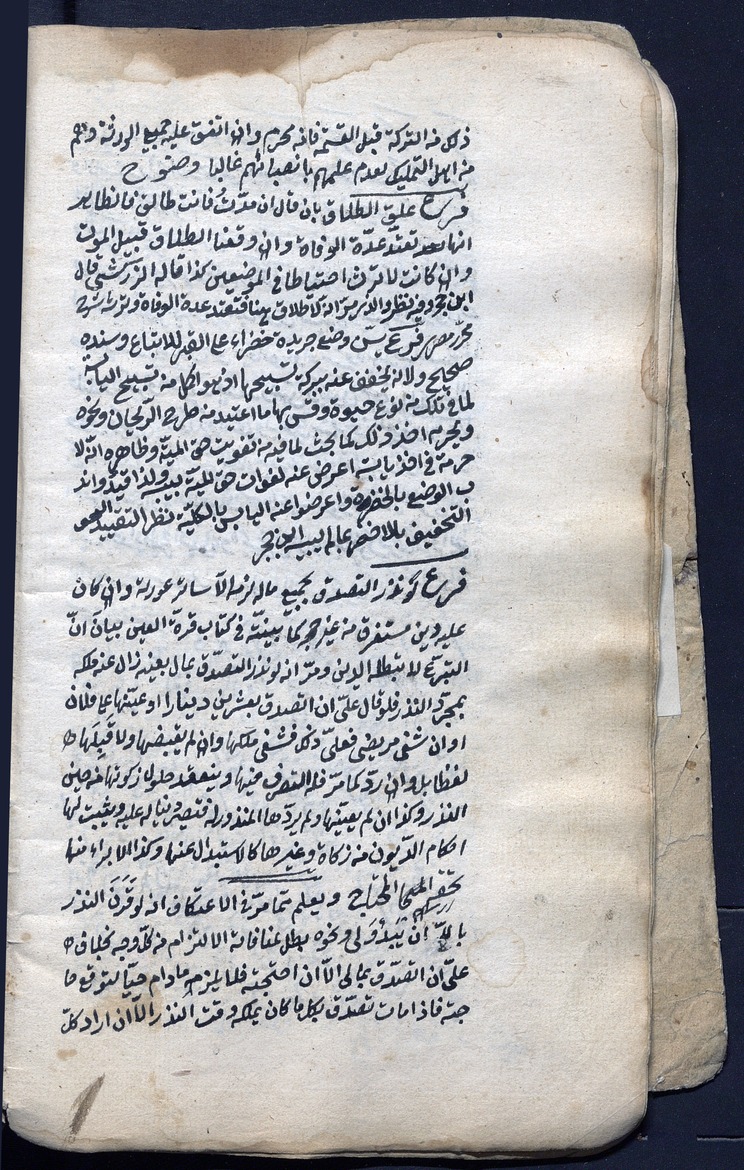 ذلك من التركة قبل القسمة فانه محرم وان اتفق عليه جميع الورثة وهم
من اهل التمليك لعدم علمهم بانصبائهم غالبا
فرع علق الطلاق بان قال ان متّ فانت طالق فالظاهر
انها تعتد عدة الوفاة وان وقعنا الطلاق قبيل الموت
وان كانت لا ترث احتياطا في الموضعين كذا قاله الزركشي قال
ابن حجر وفيه نظر والذي مرّ انه لا طلاق هنا فتعتد عدة الوفاة وترث
فرع يسن وضع جريدة خضراء على القبر للاتباع وسنده
صحيح ولانه يخفف عنه ببركة تسبيحها اذ هو اكمل من تسبيح اليابسة
لما في تلك من نوع حيوة وقس بها ما اعتيد من طرح الريحان ونحوه
ويحرم اخذ ذلك كما بحث لما فيه من تفويت حق الميت وظاهره انه لا
حرمة في اخذ يابس اعرض عنه لفوات حق الميت بيبسه ولذا قيد
الوضع بالخضرة واعرضوا عنه اليابس بالكلية نظر التقييده
التخفيف بالاخضر ما لم ييبس ابن حجر
فرع لو نذر التصدق بجميع ماله لزمه الا ساتر عورته وان كان
عليه دين مستغرق من غير حجر كما بينته في كتاب قرة العين ببيان انّ
التبرع لا يبطله الدين ومرّ انه لو نذر التصدّق بمال بعينه زال عن ملكه
بمجرّد النذر فلو قال عليّ ان اتصدق بعشرين دينارا وعيّنها على فلان
او ان شفي مريضي فعليّ ذلك فشفي ملكها وان لم يقبضها ولا قَبِلَها
لفظا بل وان ردّ كما مرّ فله التصرف فيها وينعقد حول زكوتها من حين
النذر وكذا ان لم يعيّنها ولم يردّها المنذور له فتصير دينا له عليه ويثبت لها
احكام الديون من زكاة وغيرها كالاستبدال عنها وكذا الابراء منها
تحفة المحتاج ويعلم مما مرّ في الاعتكاف انه لو قَرَنَ النذر
بالّا ان يَبدُوَ لي ونحوه بطل لمنافاته الالتزام من كلّ وجه بخلاف
عليّ ان اتصدّق بمالي الا ان احتجته فلا يلزمه مادام حيّا لتوقع حا
جته فاذا مات تصدّق بكل ما كان يملكه وقت النذر الا ان اراد كلّ